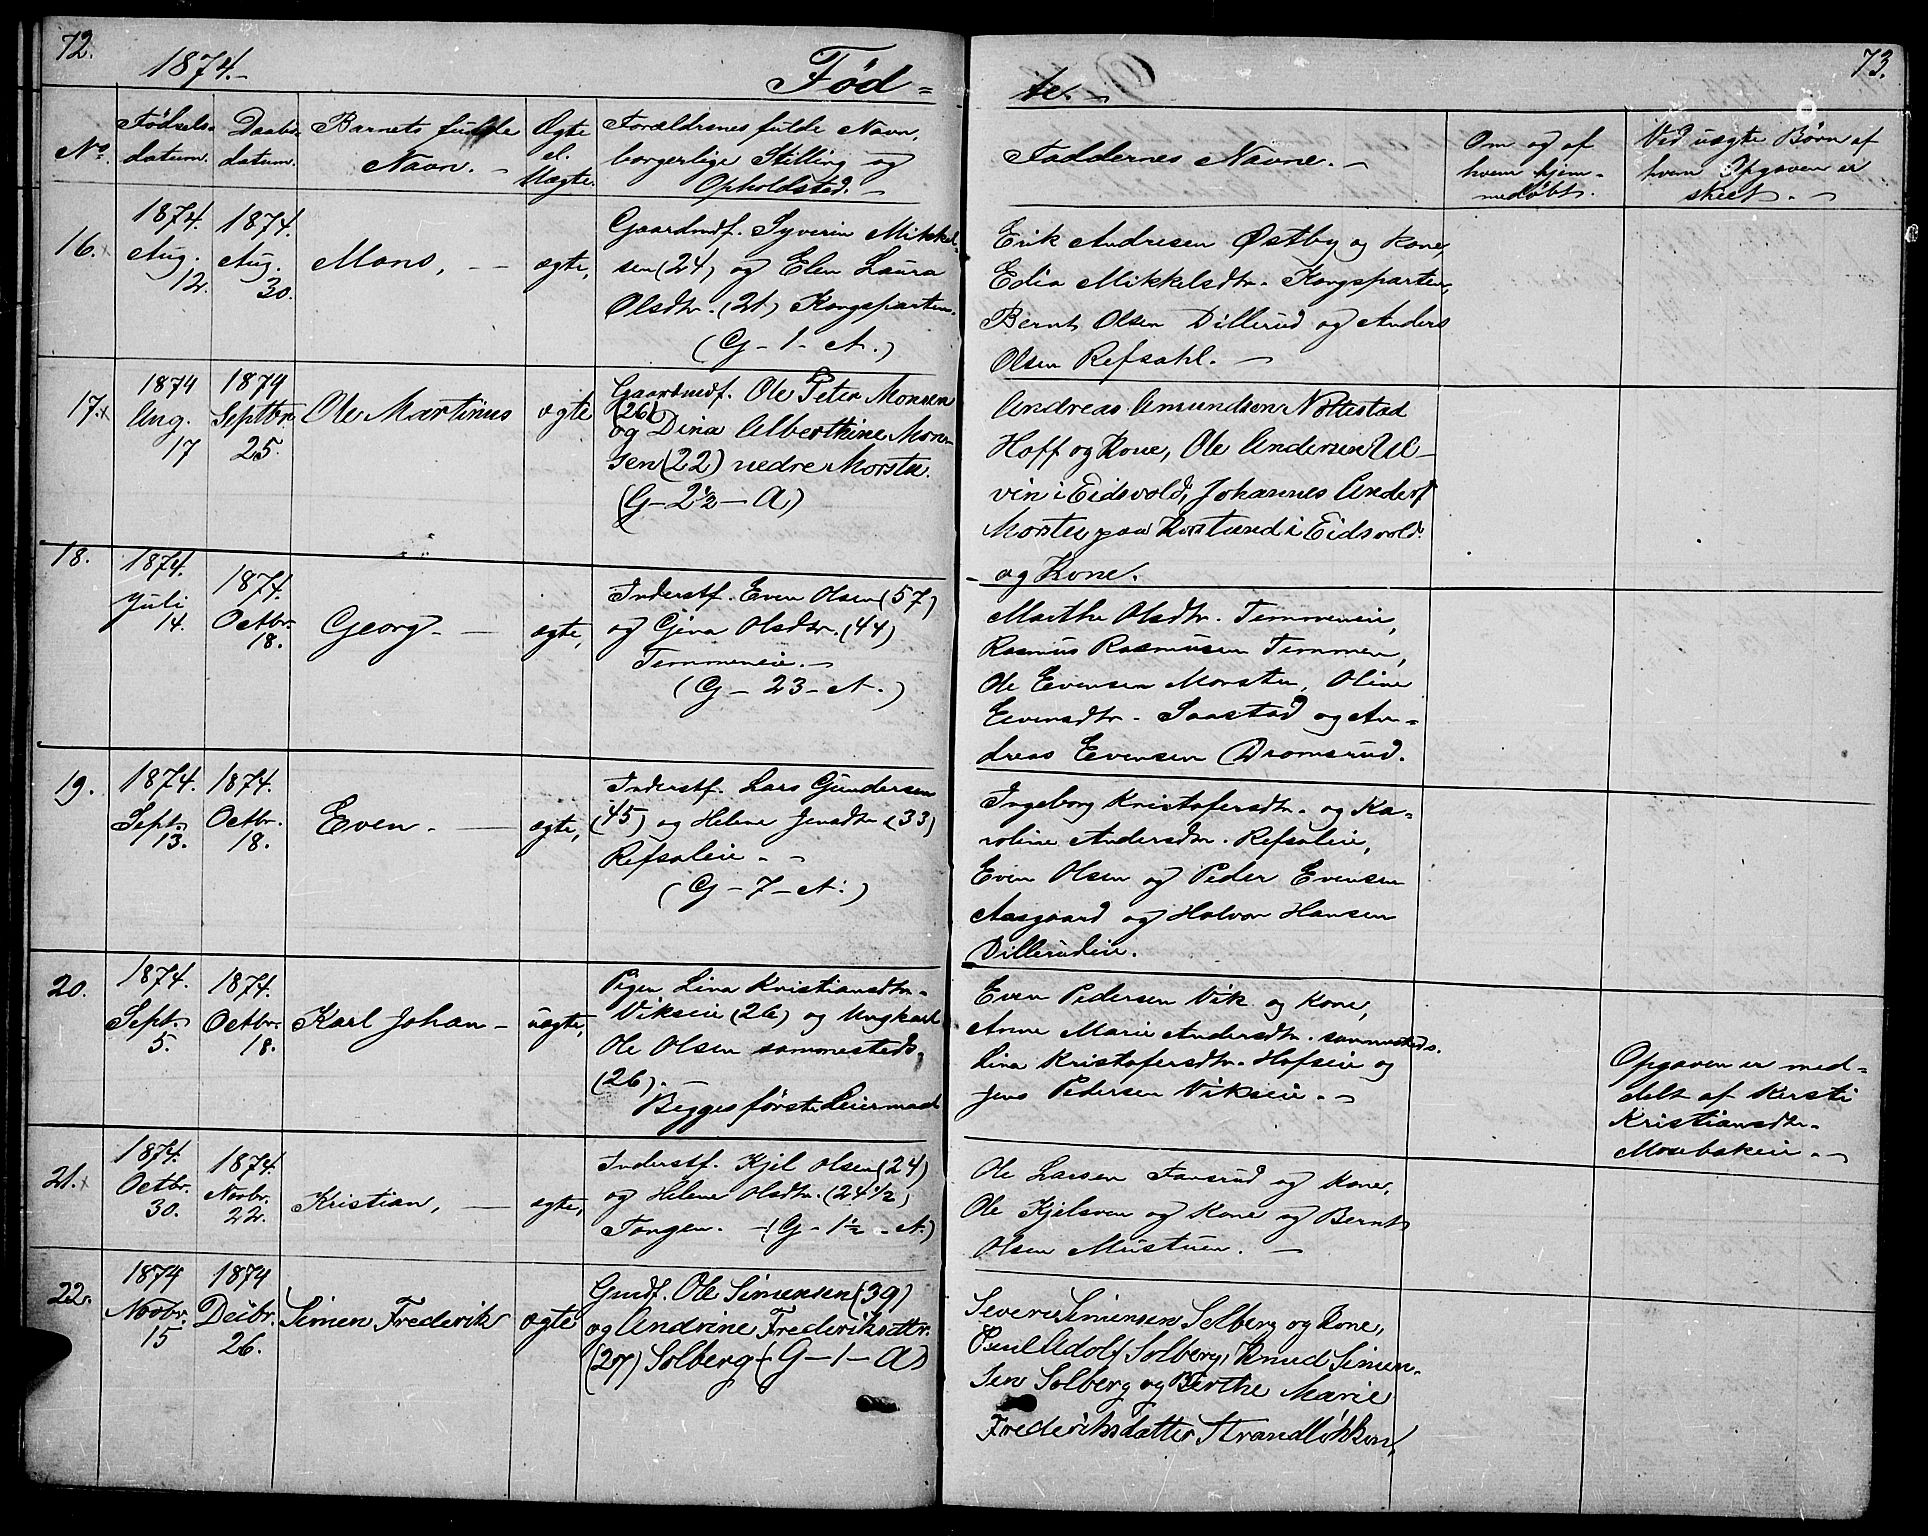 72.
1874.-
Fød=
No.
Fødsels-
datum.
Daabs-
datum.
Barnets fulde
Navn. -
Ægte
el.
Uægte.
Forældrenes fulde Navn,
borgerlige Stilling og
Opholdsted. -
16.
1874.
Aug.
12.
1874.
Aug.
30.
Mons, -
ægte,
Gaardmdf. Syverin Mikkel-
sen (24) og Elen Laura
Olsdtr. (21) Kongsparten.
(G - 1 - A.)
17.
1874
Aug.
17
1874
Septbr
25.
Ole Martinus
ægte
Gaardmdf. Ole Peter Monsen
(26)
og Dina Alberthine Mon-
sen (22) nedre Morstu.
(G - 2½ - A)
18.
1874.
Juli
14.
1874.
Octbr.
18.
Georg. -
ægte,
Inderstf. Even Olsen (57)
og Gina Olsdtr. (44)
Temmeneie. -
(G - 23 - A.)
19.
1874.
Sept.
13.
1874.
Octbr.
18.
Even. -
ægte,
Inderstf. Lars Gundersen
(45) og Helene Jensdtr (33)
Refsaleie. -
(G - 7 - A.)
20.
1874.
Sept.
5.
1874.
Octbr.
18.
Karl Johan -
uægte,
Pigen Lina Kristiansdtr.
Vikseie (26) og Ungkarl
Ole Olsen sammesteds,
(26). -
Begges første Leiermaal
21.
1874.
Octbr.
30.
1874.
Novbr.
22.
Kristian, -
ægte,
Inderstf. Kjel Olsen (24)
og Helene Olsdtr. (24½)
Tangen. - (G - 1½ - A.)
22.
1874
Novbr.
15
1874
Decbr.
26.
Simen Frederik
ægte
Gmdf. Ole Simensen (39)
og Andrine Frederiksdtr.
(27) Solberg (G - 1 - A)
73.
te. -
Faddernes Navne. -
Om og af
hvem hjem-
medøbt.
Ved uægte Børn af
hvem Opgaven er
skeet. -
Erik Andresen Østby og Kone,
Edia Mikkelsdtr. Kongsparten,
Bernt Olsen Dillerud og Anders
Olsen Refsahl. -
Andreas Amundsen Nøttestad
Hoff og Kone, Ole Andersen Ul-
vin i Eidsvold, Johannes Anders.
Morstu paa i Eidsvold
og Kone.
Marthe Olsdtr. Temmeneie,
Rasmus Rasmusen Temmen,
Ole Evensen Morstu, Oline
Evensdtr. Saastad og An=
dreas Evensen Dromsrud.
Ingeborg Kristofersdtr. og Ka=
roline Andersdtr. Refsaleie,
Even Olsen og Peder Evensen
Aasgaard og Halvor Hansen
Dillerudeie.
Even Pedersen Vik og Kone,
Anne Marie Andersdtr. sammesteds.
Lina Kristofersdtr. Hofseie og
Jens Pedersen Vikseie. -
Opgaven er med=
delt af Kirsti
Kristiansdtr.
Moubakeie. -
Ole Larsen Fansrud og Kone,
Ole Kjelsven og Kone og Bernt
Olsen Mustuen. -
Severin Simensen Solberg og Kone,
Paul Adolf Solberg, Knud Simen-
sen Solberg og Berthe Marie
Frederiksdatter Strandløkken,